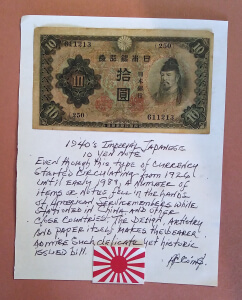 10 10
611213 {250}
拾圓
{250} 611213
10 10
1940's IMPERIAL JAPANESE
10 YEN NOTE
EVEN THOUGH THIS TYPE OF CURRENCY
STARTED CIRCULATING FROM 1926
UNTIL EARLY 1989, A NUMBER OF
ITEMS OR NOTES, FELL IN THE HANDS
OF AMERICAN SERVICEMEMBERS WHILE
STATIONED IN CHINA AND OTHER
COUNTRIES. THE DESIGN, ARTISTRY
AND PAPER ITSELF, MAKES THE BEARER
ADMIRE SUCH DELICATE YET HISTORIC
ISSUED BILL.